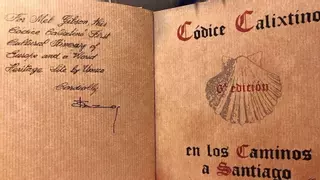 For Mel Gibson, this
Codice Calixtino First
Cultural Itinerary of
Europe and a World
Heritage Site by Unesco
Cordially
Códice Calixtino
6ª edición
en los Caminos
a Santiago